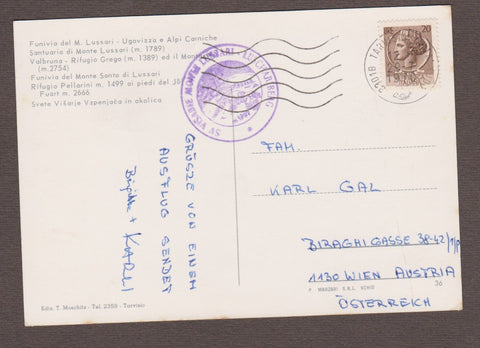 Funivia del M. Lussari - Ugovizza e Alpi Carniche
Santuario di Monte Lussari (m. 1789)
Valbruna - Rifugio Grego (m. 1389) ed il Mont
(m. 2754)
Funivia del Monte Santo di Lussari
Rifugio Pellarini m. 1499 ai piedi del Jôf
Fuart m. 2666
Svete Višarje Vzpenjača in okolica
MONTE LUSSARI LUSCHARIBERG
SV VIŠARJE
20
33018 TAR
GRÜSZE VON EINEM
AUSFLUG SENDET
Brigitte + KARLI
FAM.
KARL GAL
BIRAGHIGASSE 38-42/1/9
1130 WIEN AUSTRIA
ÖSTERREICH
Ediz. T. Moschitz - Tel. 2359 - Tarvisio
36